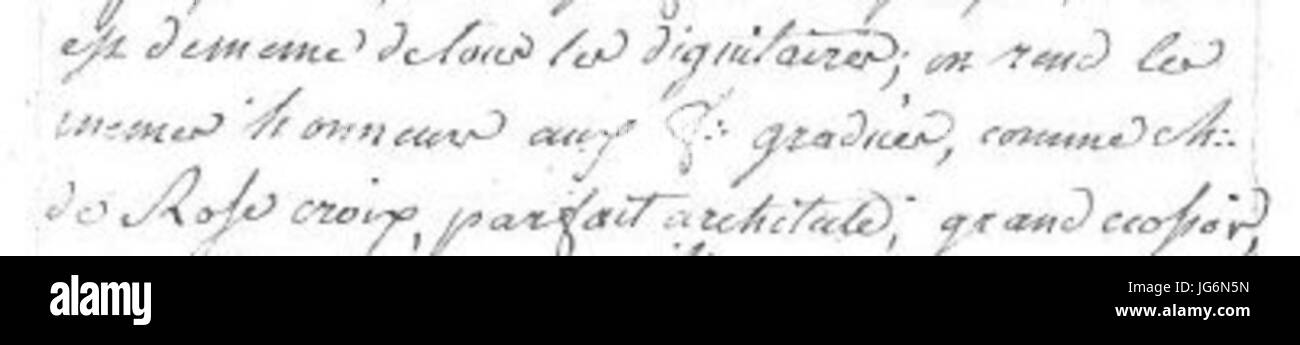 est de meme de tous les dignitaires; on rend les
memes honneurs aux F∴ gradués, comme ch∴
de Rose croix, parfait architecte; grand ecossois,
alamy
Image ID: JG6N5N
www.alamy.com